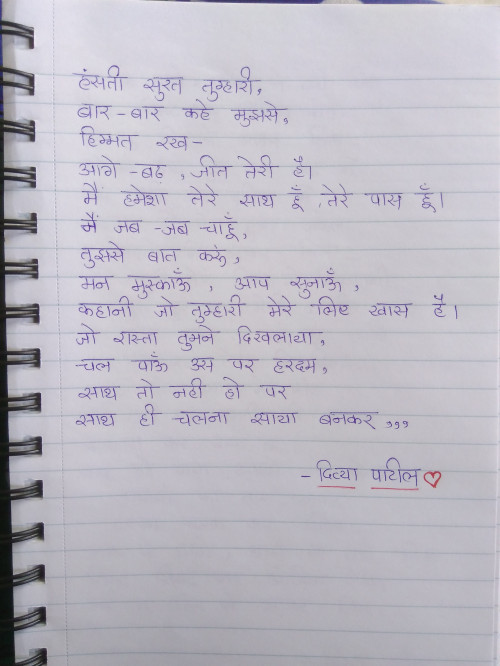 हंसती सुरत तुम्हारी,
बार-बार कहे मुझसे,
हिम्मत रख-
आगे-बढ़, जीत तेरी है।
मैं हमेशा तेरे साथ हूँ, तेरे पास हूँ।
मैं जब-जब चाहूँ,
तुझसे बात करूं,
मन मुस्काऊँ, आप सुनाऊँ,
कहानी जो तुम्हारी मेरे लिए खास है।
जो रास्ता तुमने दिखलाया,
चल पाऊँ उस पर हरदम,
साथ तो नही हो पर
साथ ही चलना साया बनकर,,,
- दिव्या पाटील